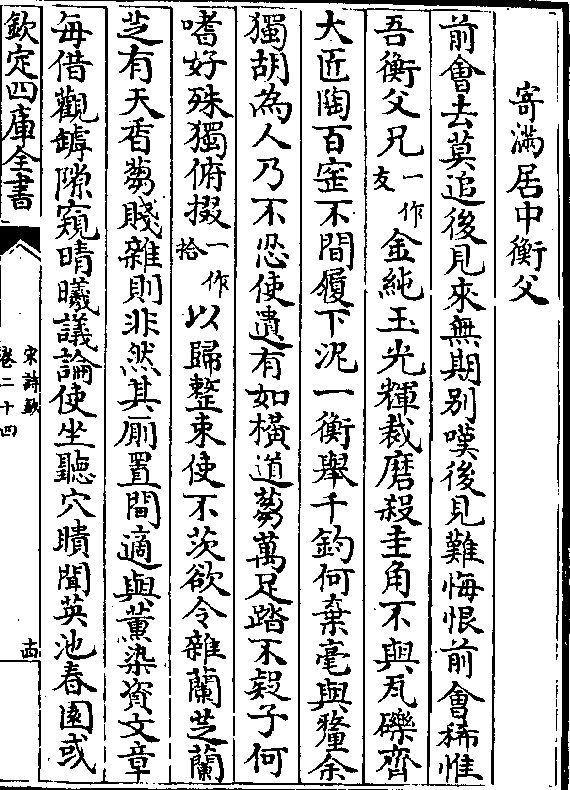 寄滿居中衡父
前會去莫追後見來無期别嘆後見難悔恨前會稀惟
吾衡父兄一作友金純玉光輝裁磨殺圭角不與瓦礫齊
大匠陶百窑不間履下泥一衡舉千鈞何棄毫與釐余
獨胡為人乃不忍使遺有如橫道蒭萬足踏不疑子何
嗜好殊獨俯掇一作拾以歸整束使不茨欲令雜蘭芝蘭
芝有天香蒭賤雜則非然其厠置間適與薰染資文章
每借觀罅隙窺晴曦議論使坐聽穴聵聞英池春園或
欽定四庫全書
宋詩鈔
卷二十四
十四